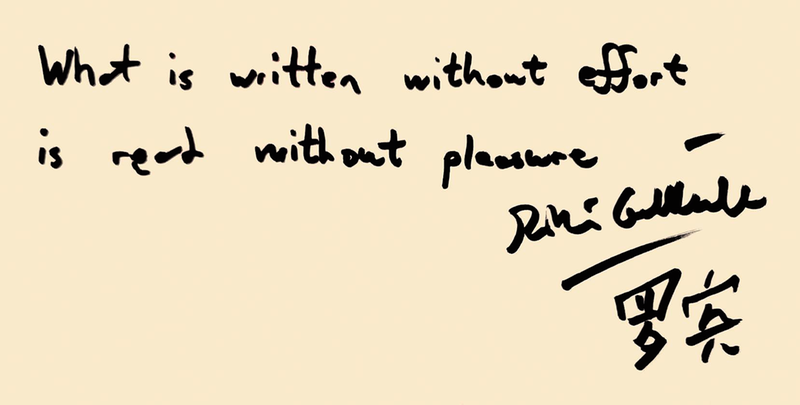 What is written without effort
is read without pleasure –
罗宾